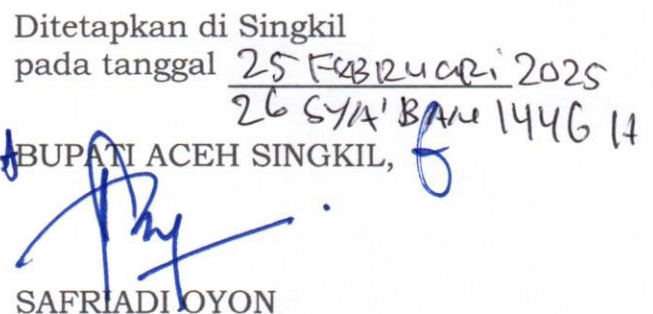 Ditetapkan di Singkil
pada tanggal 25 FEBRUARI 2025
26 SYA'BAN 1446 H
BUPATI ACEH SINGKIL,
SAFRIADI OYON